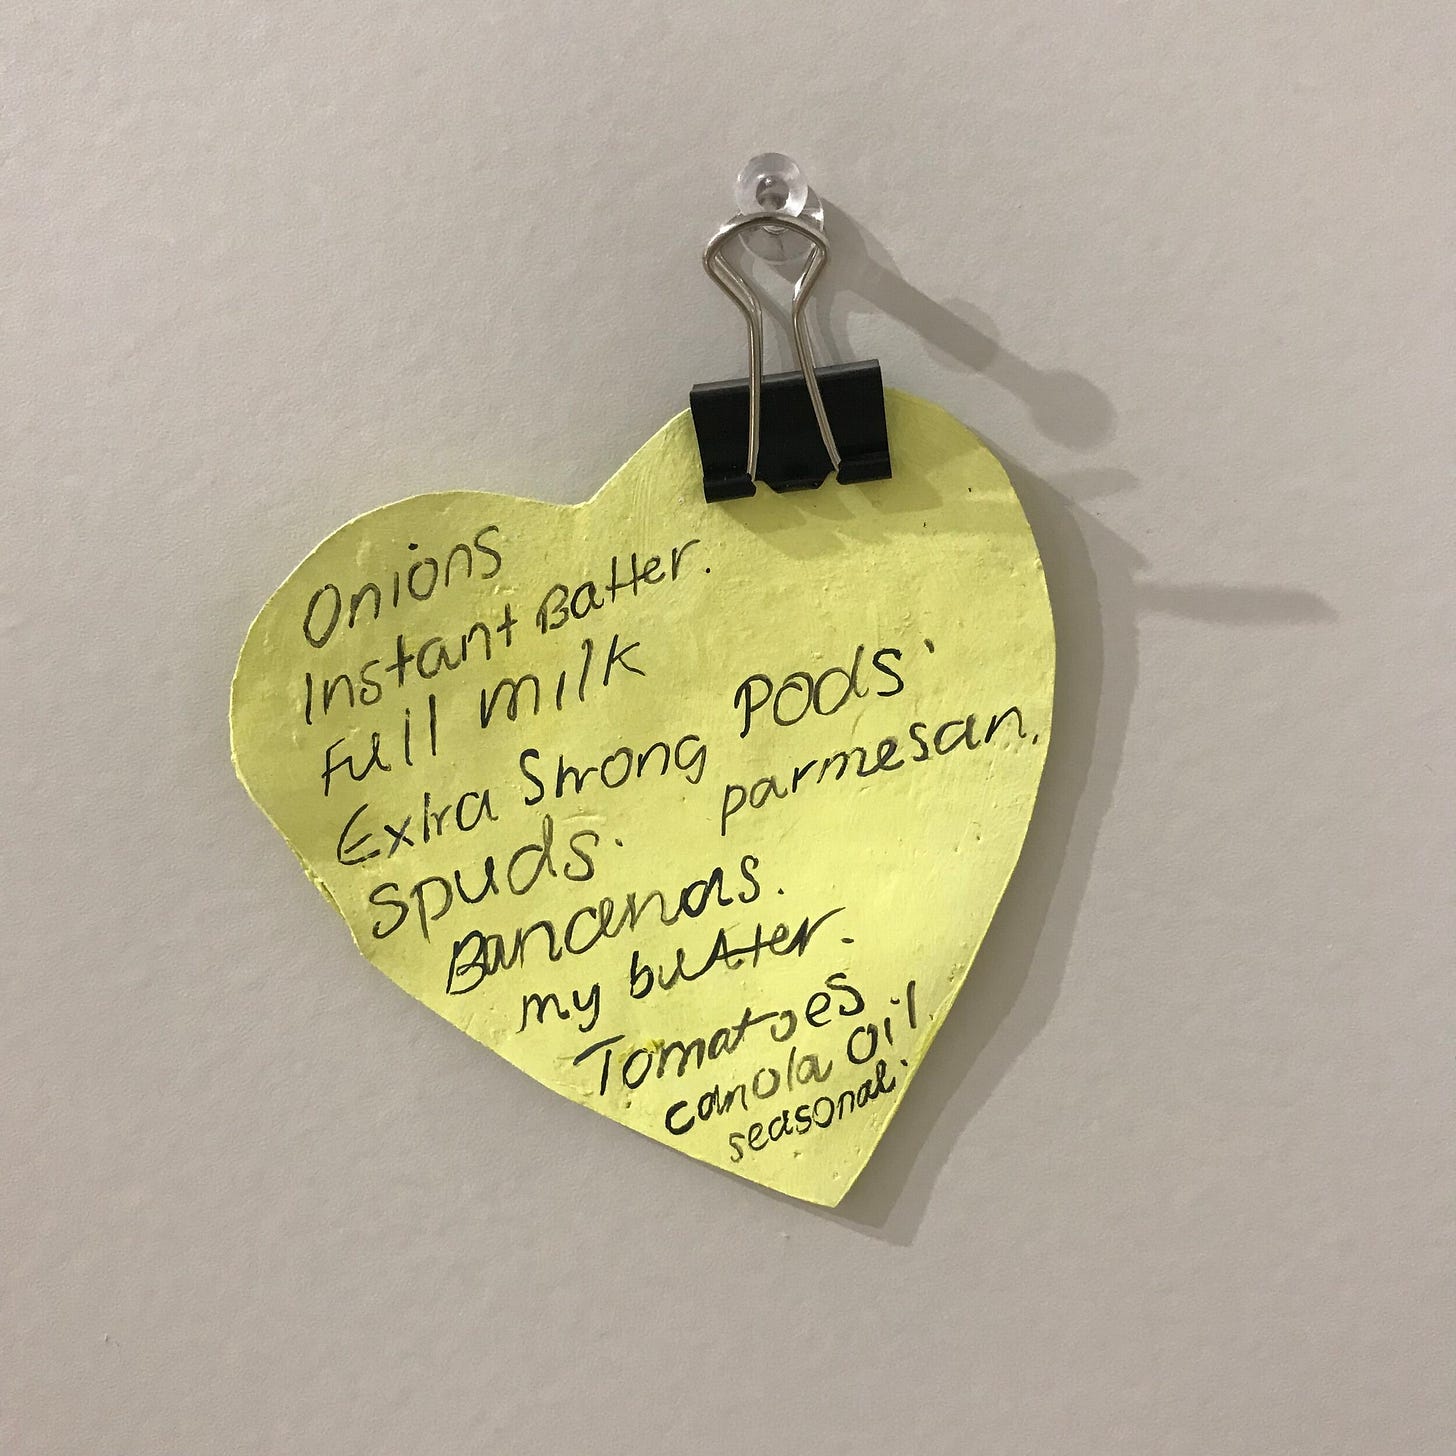 Onions
Instant Batter.
Full milk
Extra Strong Pods.
Spuds. parmesan.
Bananas.
my butter.
Tomatoes
canola oil
seasonal.